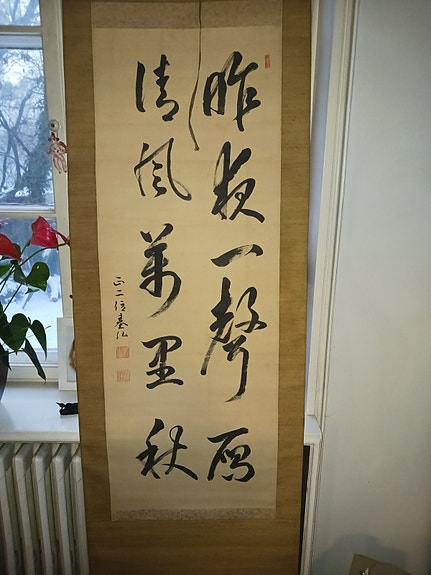 昨夜一聲雁
清風萬里秋
正二位基